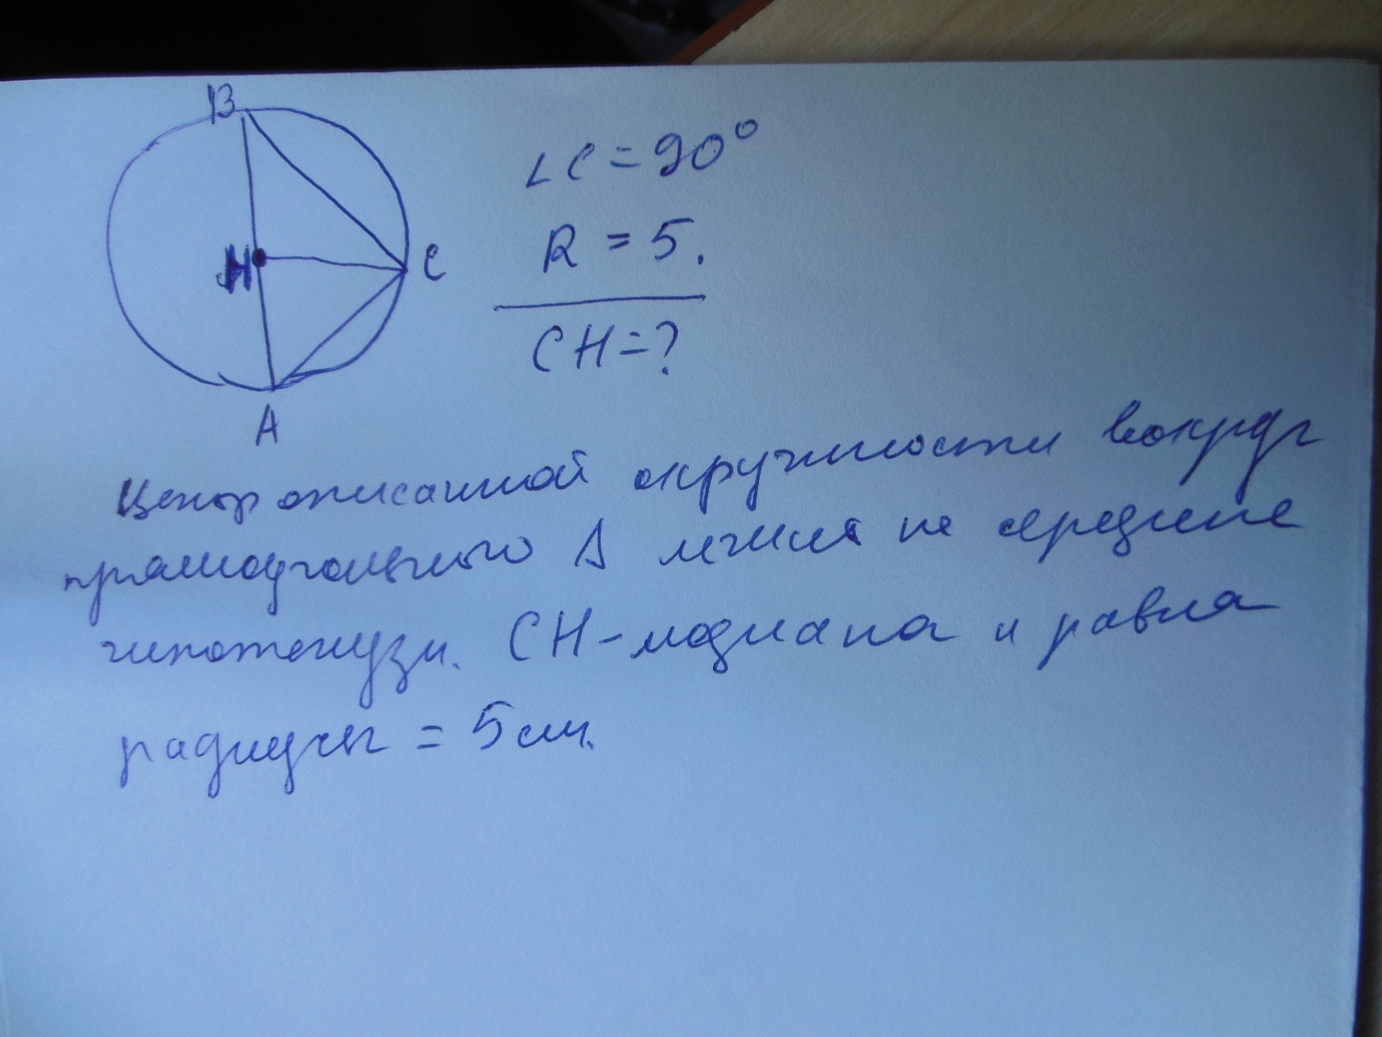 B
∠C = 90°
R = 5.
H
C
CH = ?
A
Центр описанной окружности вокруг
прямоугольного Δ лежит на середине
гипотенузы. CH - медиана и равна
радиусу = 5 см.